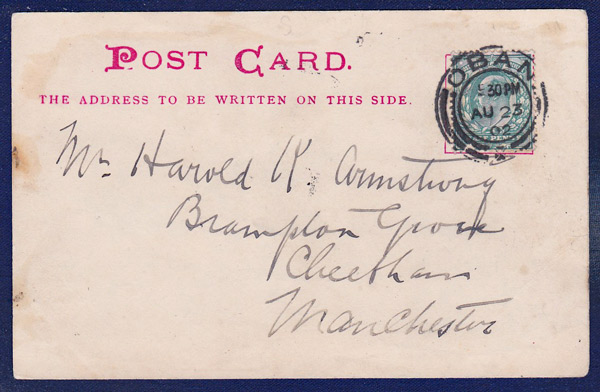 POST CARD.
THE ADDRESS TO BE WRITTEN ON THIS SIDE.
OBAN
5.30PM
AU 23
02
Mr Harold K. Armstrong
Brampton Grove
Cheetham
Manchester